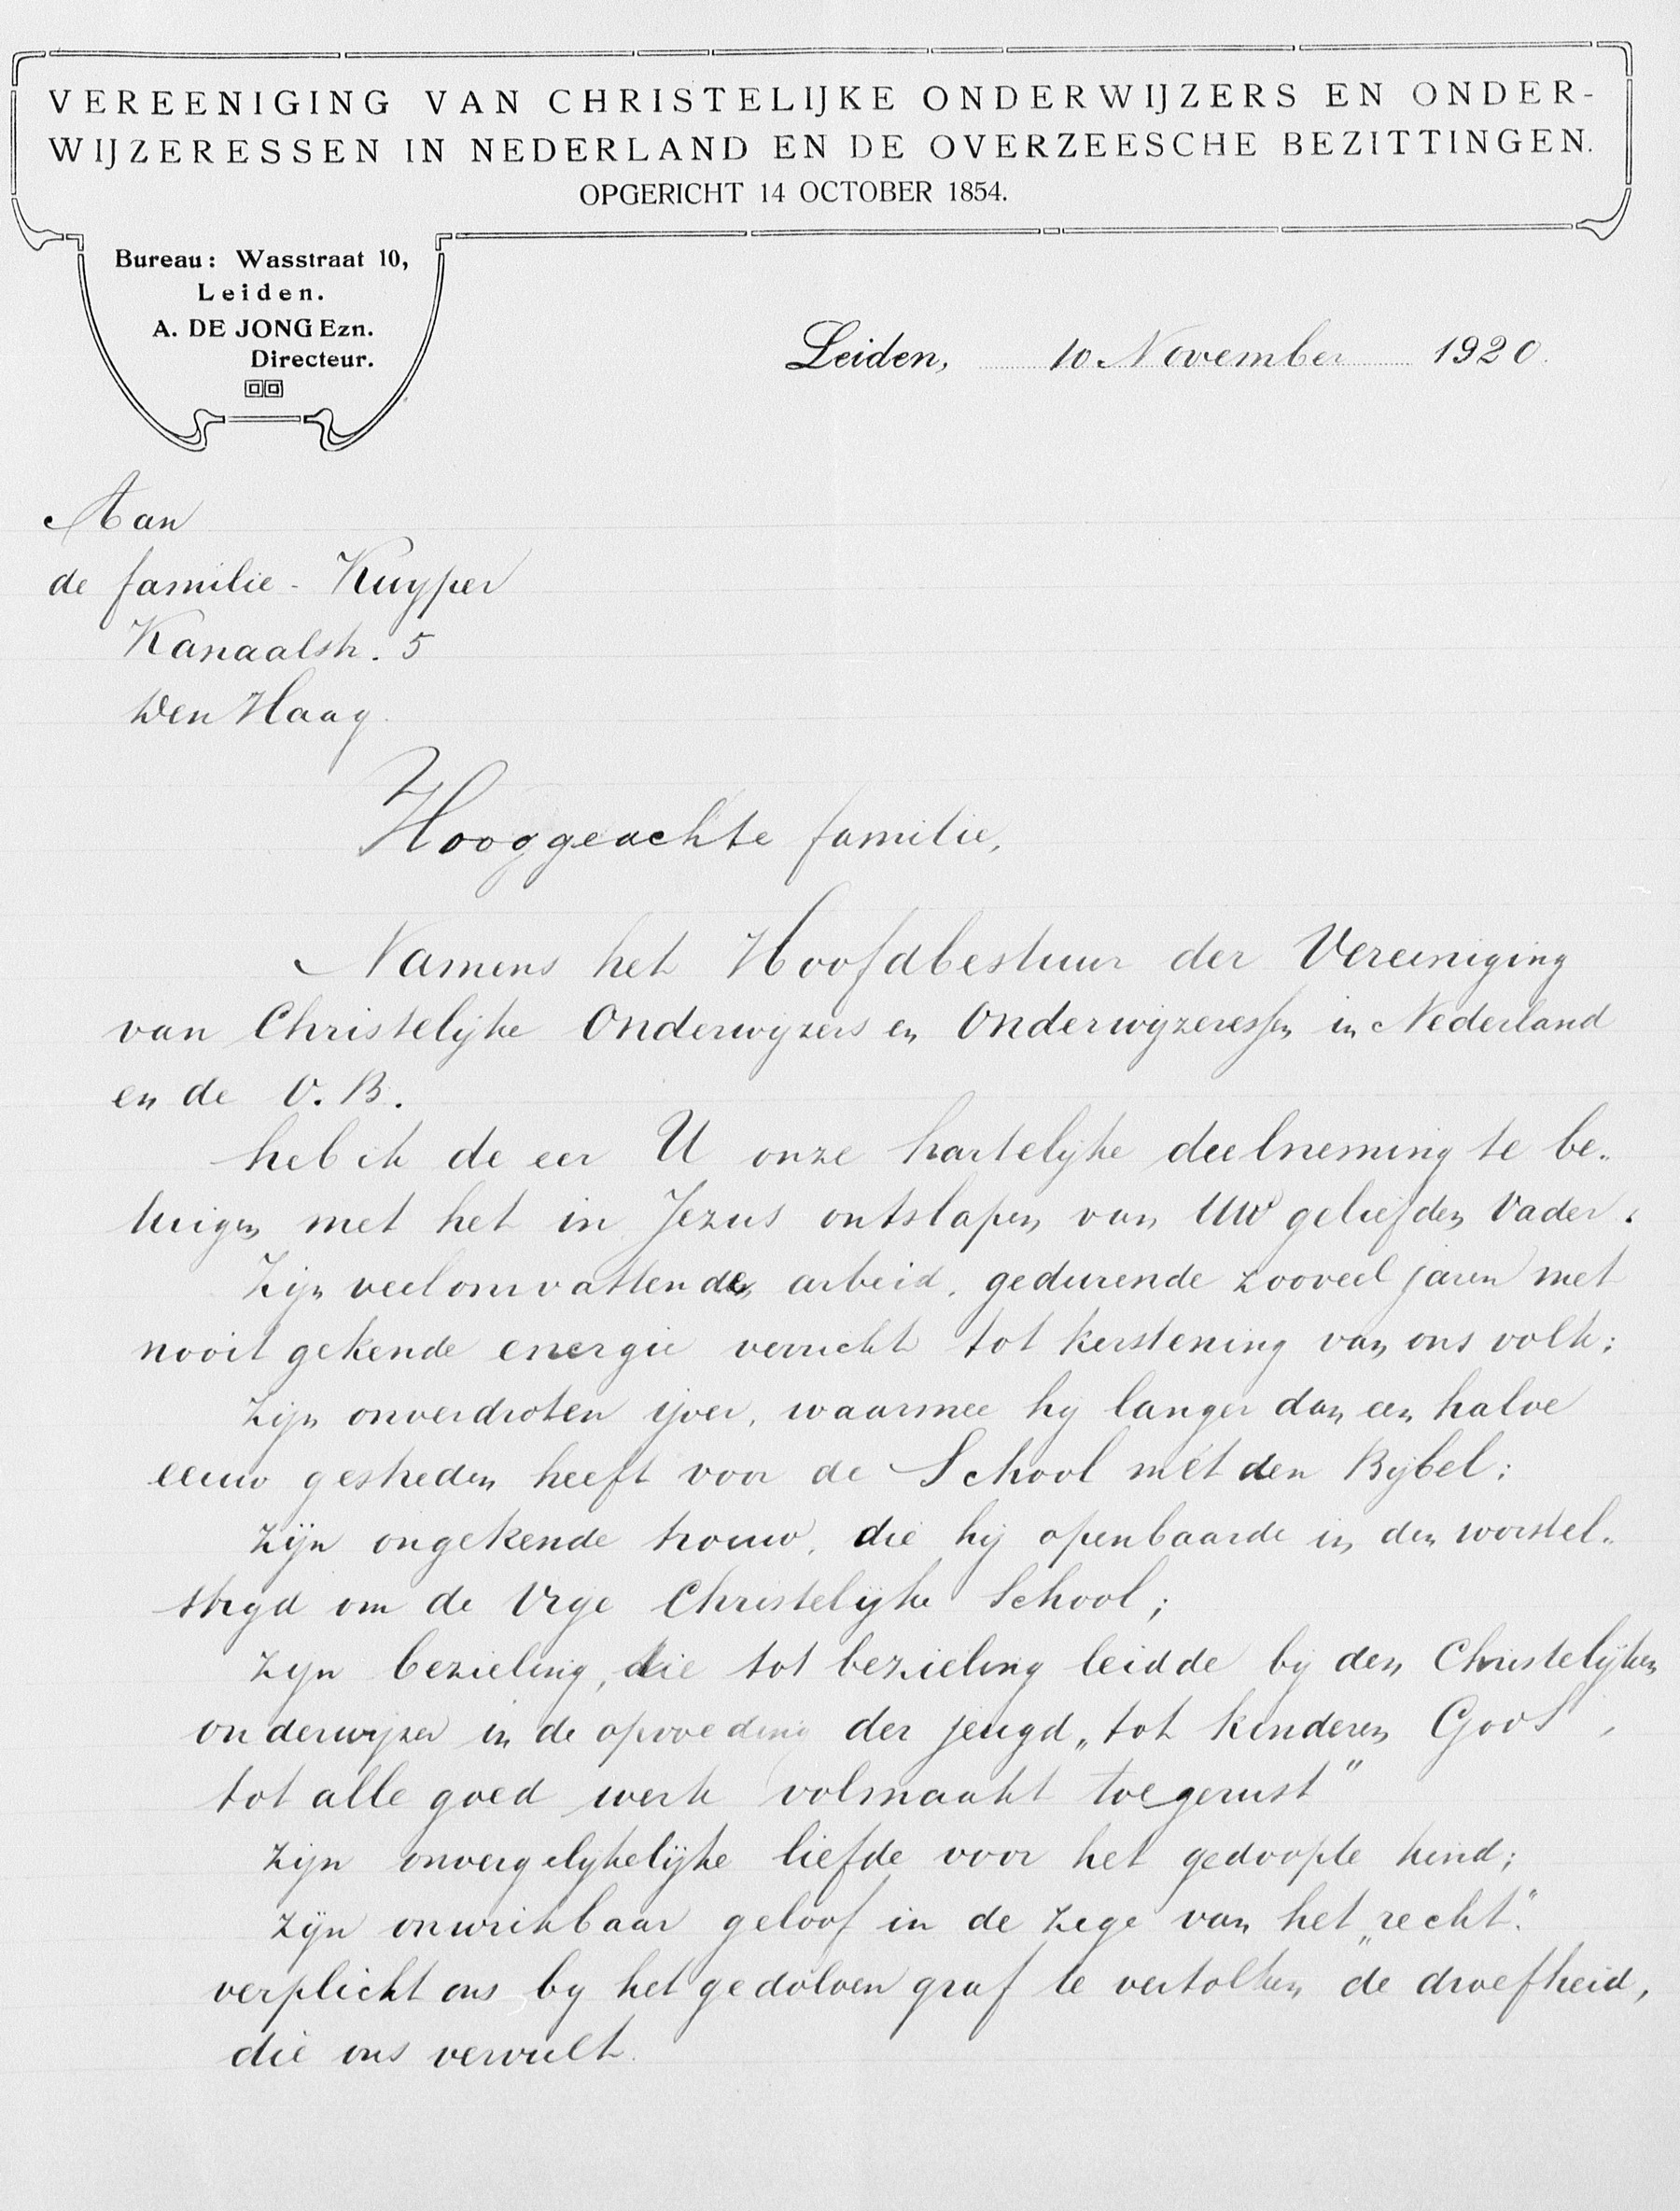 VEREENIGING VAN CHRISTELIJKE ONDERWIJZERS EN ONDER-
WIJZERESSEN IN NEDERLAND EN DE OVERZEESCHE BEZITTINGEN.
OPGERICHT 14 OCTOBER 1854.
Bureau: Wasstraat 10,
Leiden.
A. DE JONG Ezn.
Directeur.
Leiden, 10 November 1920.
Aan
de familie - Kuyper
Kanaalstr. 5
Den Haag.
Hooggeachte familie,
Namens het Hoofdbestuur der Vereeniging
van Christelijke Onderwijzers en Onderwijzeressen in Nederland
en de O.B.
heb ik de eer U onze hartelijke deelneming te be-
tuigen met het in Jezus ontslapen van Uw geliefden Vader.
Zijn veelomvattenden arbeid, gedurende zooveel jaren met
nooit gekende energie verricht tot kerstening van ons volk;
Zijn onverdroten ijver, waarmee hij langer dan een halve
eeuw gestreden heeft voor de School mét den Bijbel;
Zijn ongekende trouw, die hij openbaarde in den worstel-
strijd om de Vrije Christelijke School;
Zijn bezieling, die tot bezieling leidde bij den Christelijken
onderwijzer in de opvoeding der jeugd „tot kinderen Gods,
tot alle goed werk volmaakt toegerust"
Zijn onvergelijkelijke liefde voor het gedoopte kind;
Zijn onwrikbaar geloof in de zege van het „recht".
verplicht ons bij het gedolven graf te vertolken de droefheid,
die ons vervult.